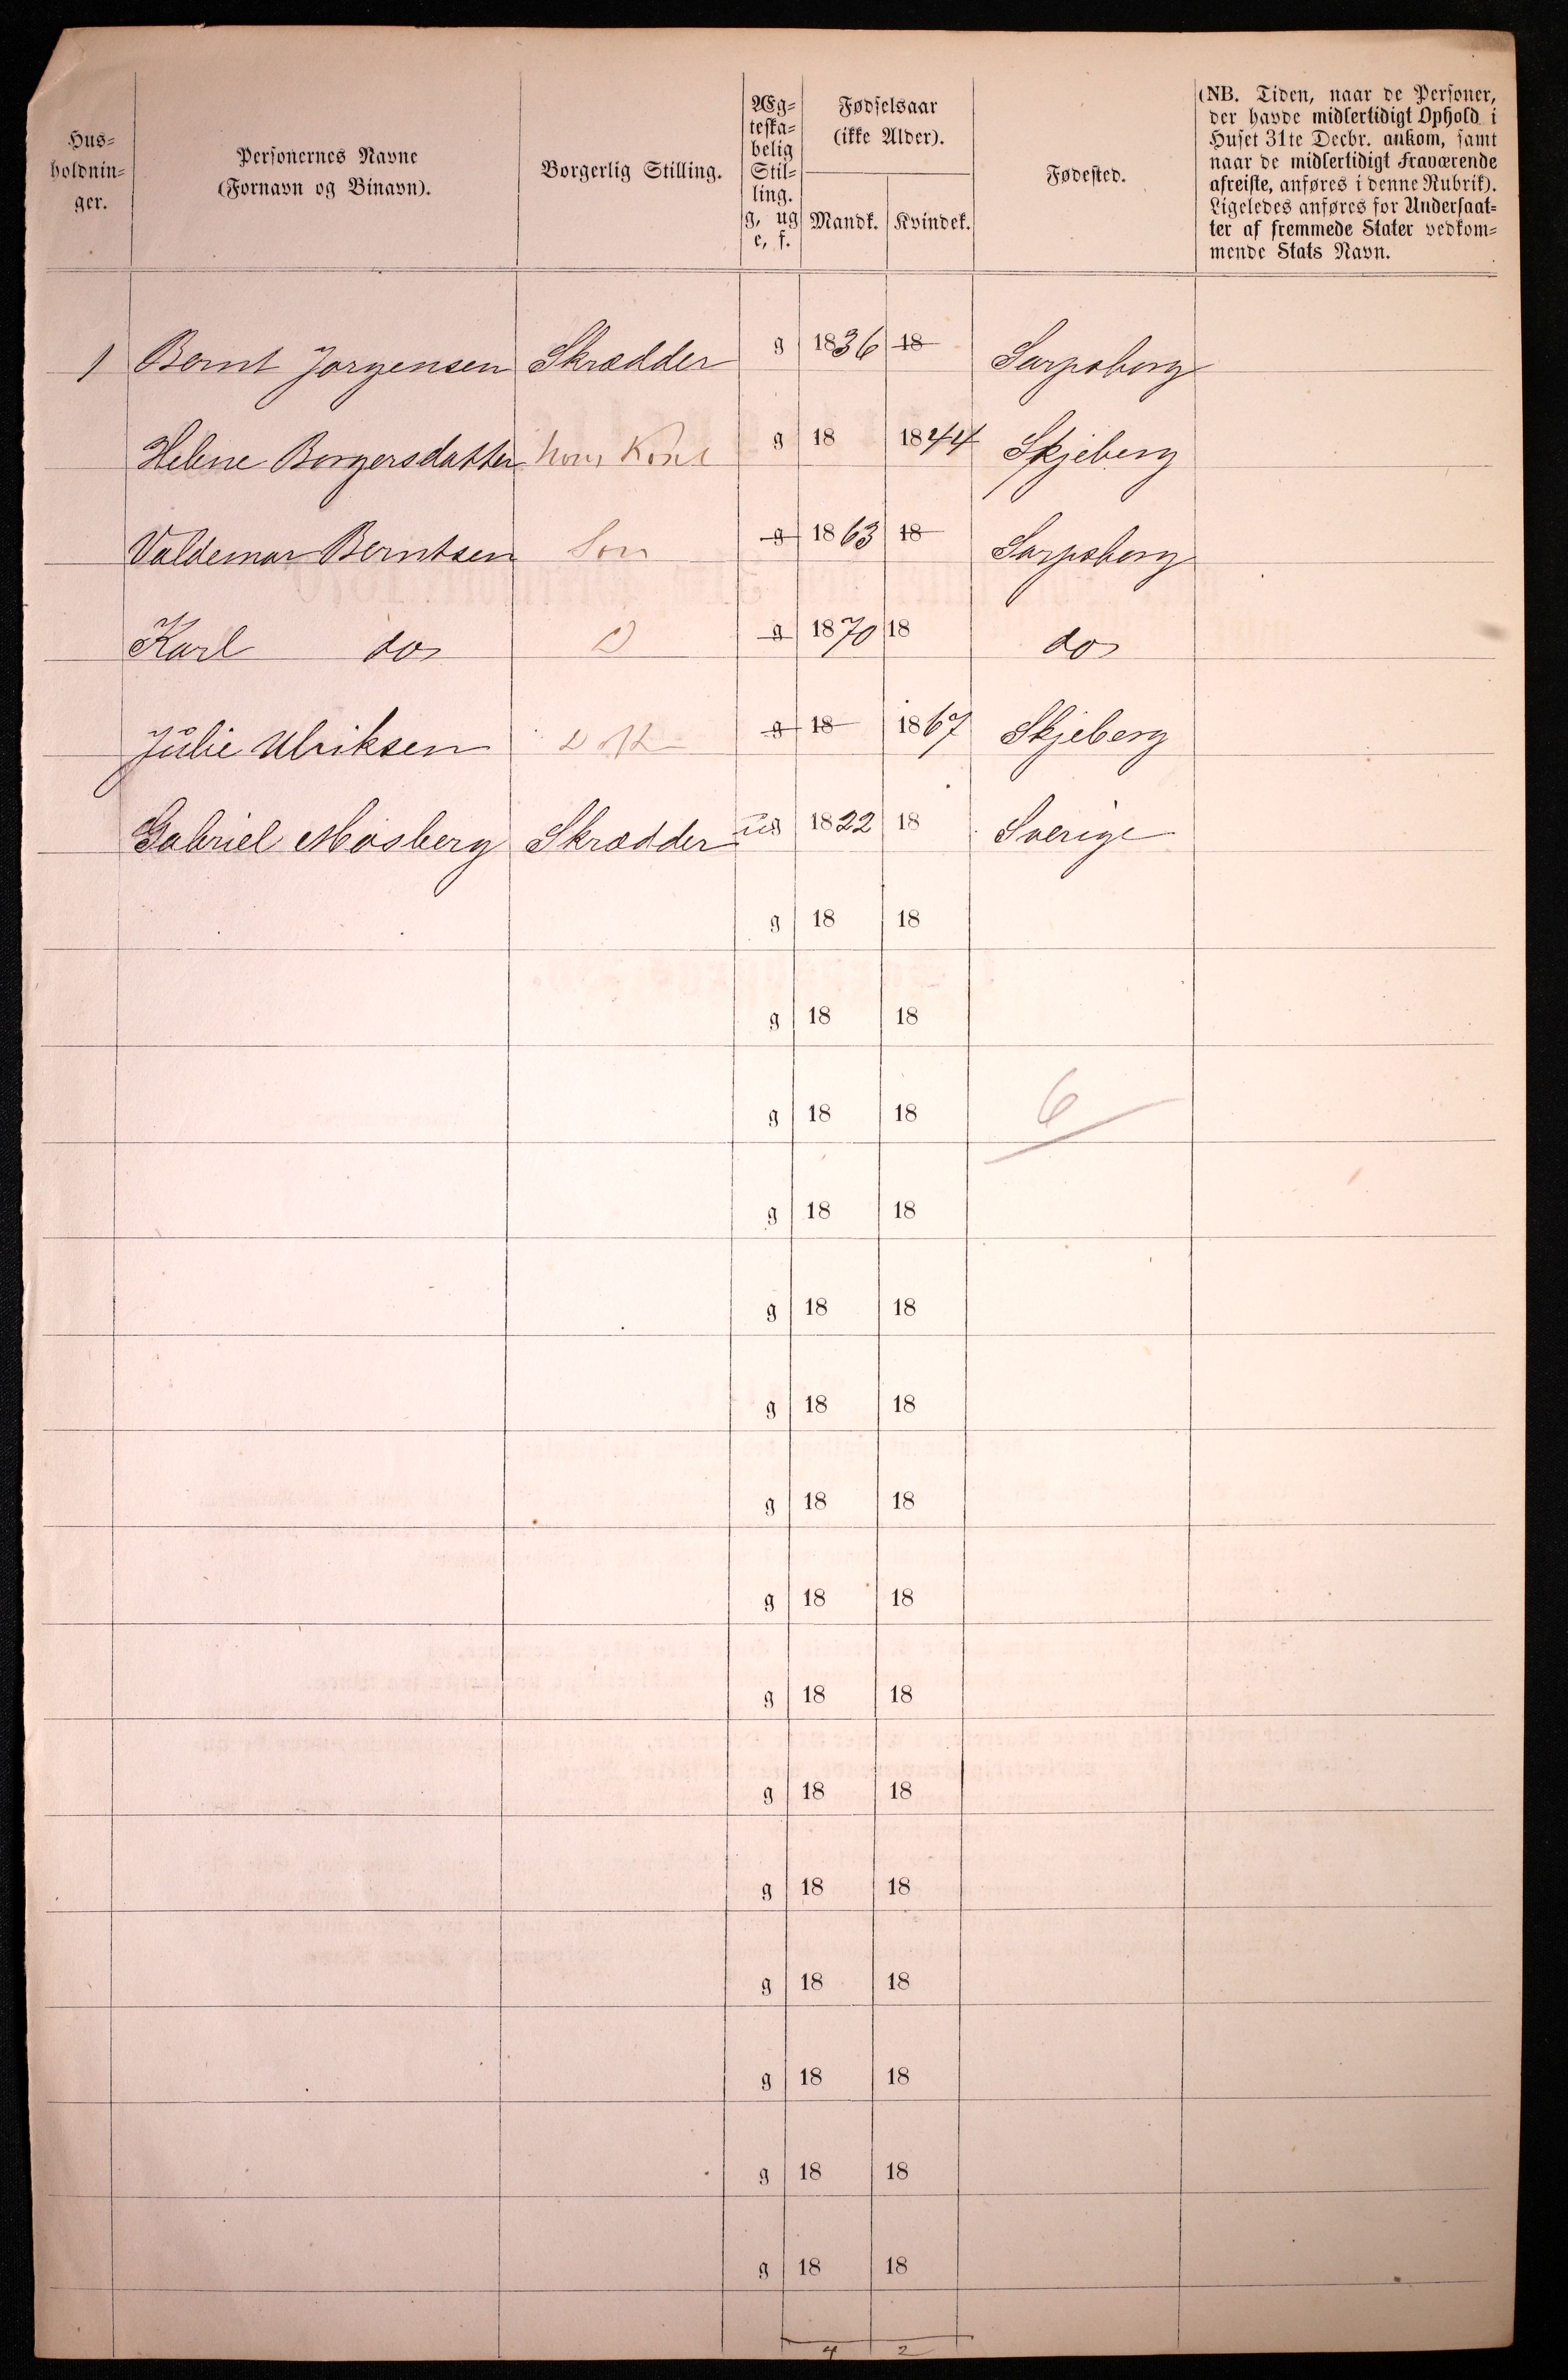 Hus-
holdnin-
ger.
Personernes Navne
(Fornavn og Binavn).
Borgerlig Stilling.
Æg-
teska-
belig
Stil-
ling.
g, ug
e, f.
Fødselsaar
(ikke Alder).
Mandk. Kvindek.
Fødested.
(NB. Tiden, naar de Personer,
der havde midlertidigt Ophold i
Huset 31te Decbr. ankom, samt
naar de midlertidigt fraværende
afreiste, anføres i denne Rubrik).
Ligeledes anføres for Undersaat-
ter af fremmede Stater vedkom-
mende Stats Navn.
1 Bernt Jørgensen Skrædder g 1836 18 Sarpsborg
Helene Borgersdatter hans Kone g 18 1844 Skjeberg
Valdemar Berntsen Søn g 1863 18 Sarpsborg
Karl do g 1870 18 do
Julie Ulriksen g 18 1867 Skjeberg
Gabriel Mosberg Skrædder ug 1822 18 Sverige
g 18 18
g 18 18
g 18 18 6
g 18 18
g 18 18
g 18 18
g 18 18
g 18 18
g 18 18
g 18 18
g 18 18
g 18 18
g 18 18
g 18 18
g 18 18
4 2